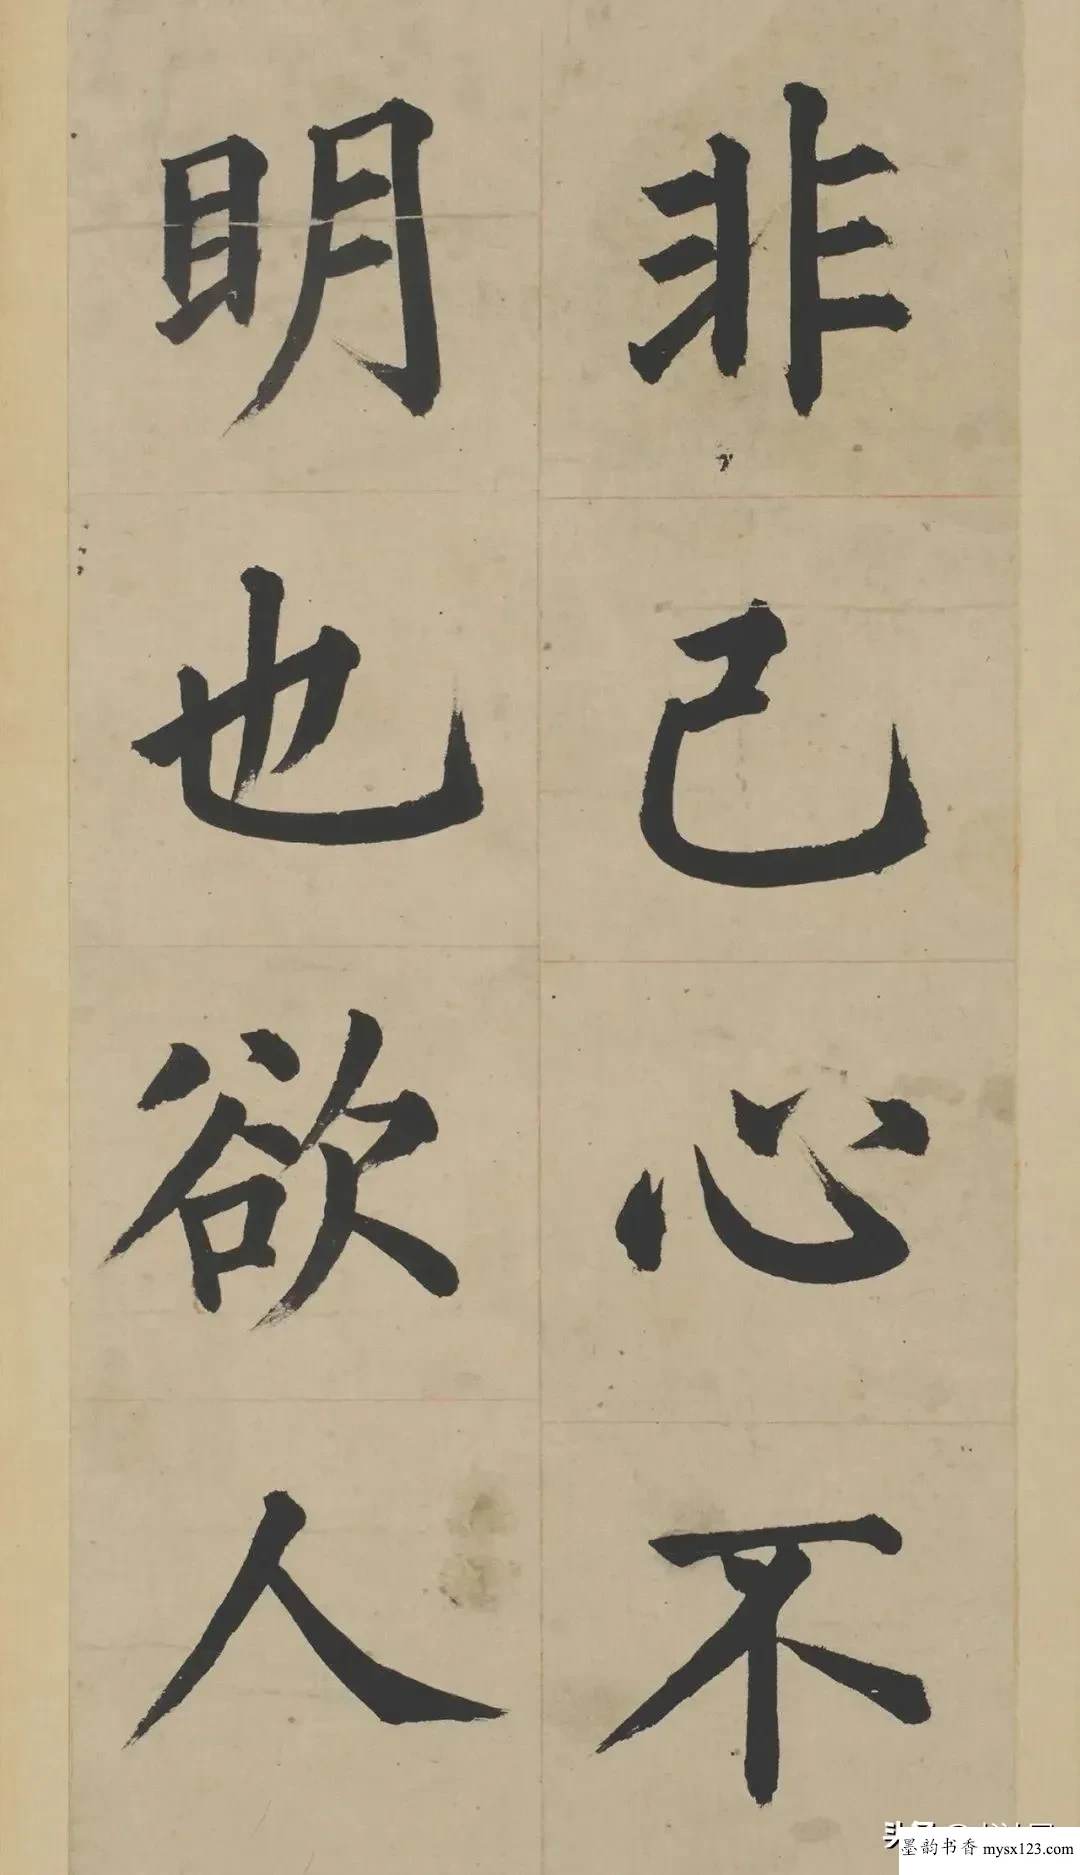 非己心不
明也欲人
墨韵书香 mysx123.com